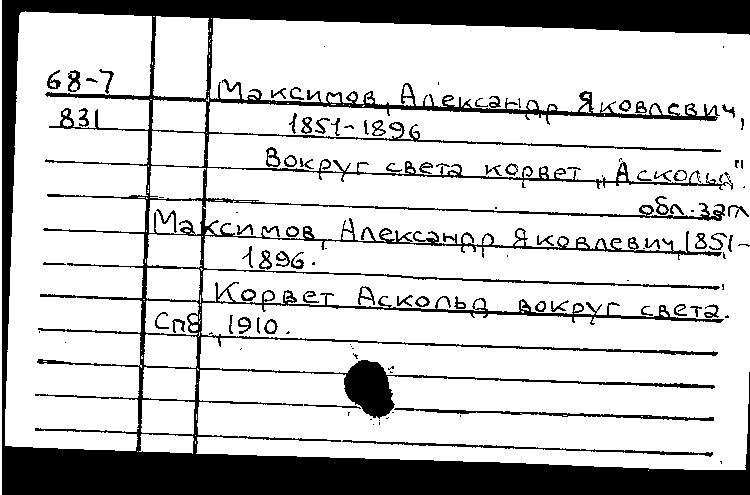 68-7 Максимов, Александр Яковлевич,
831 1851-1896
Вокруг света корвет „Аскольд".
обл. загл
Максимов, Александр Яковлевич, 1851-
1896.
Корвет Аскольд вокруг света.
Спб, 1910.